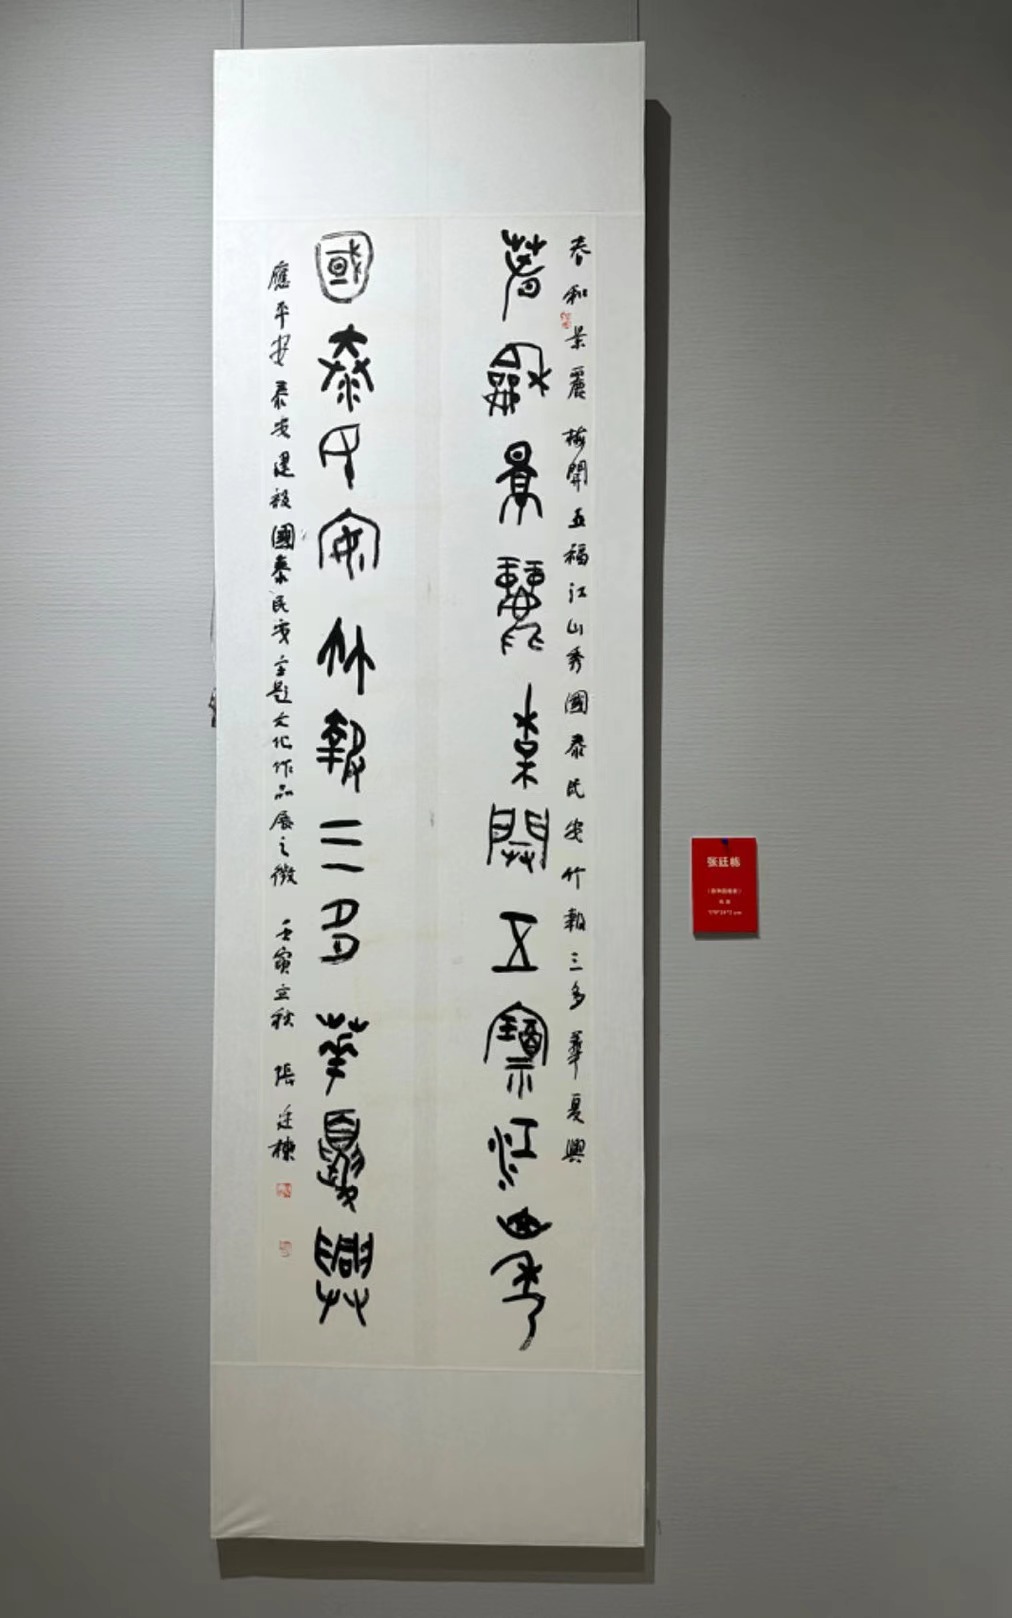 春和景麗梅開五福江山秀國泰民安竹報三多華夏興
春和景麗梅開五福江山秀
國泰民安竹報三多華夏興
應平安泰安建設國泰民安主題文化作品展之徵 壬寅立秋 張廷棟
张廷栋